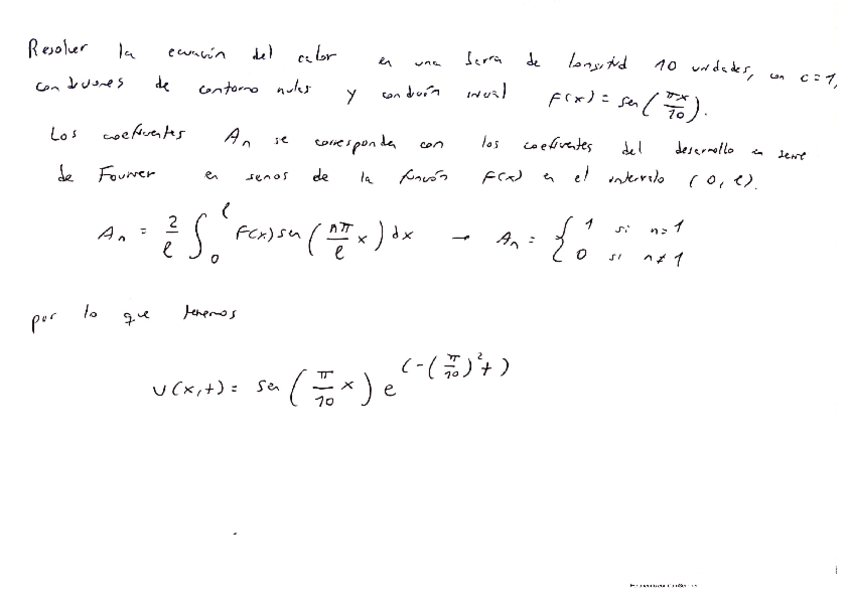 Resolver la ecuación del calor en una barra de longitud 10 unidades, con c = 1,
condiciones de contorno nulas y condición inicial F(x) = sen(πx/10).
Los coeficientes An se corresponden con los coeficientes del desarrollo en serie
de Fourier en senos de la función F(x) en el intervalo (0, l).
An = 2/l ∫₀ˡ F(x) sen(nπ/l x) dx → An = { 1 si n=1
0 si n≠1
por lo que tenemos
u(x,t) = sen(π/10 x) e^(-(π/10)² t)